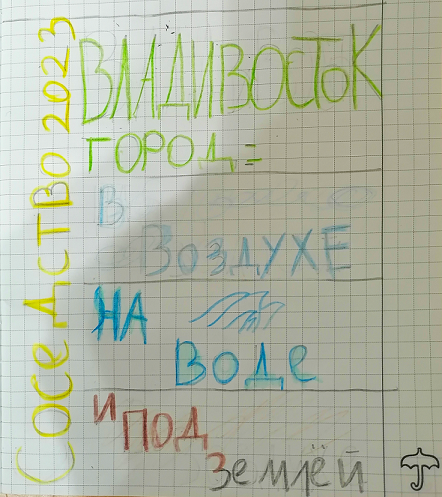 СОСЕДСТВО 2023
ВЛАДИВОСТОК
ГОРОД =
В
ВОЗДУХЕ
НА
ВОДЕ
И ПОД
ЗЕМЛЁЙ